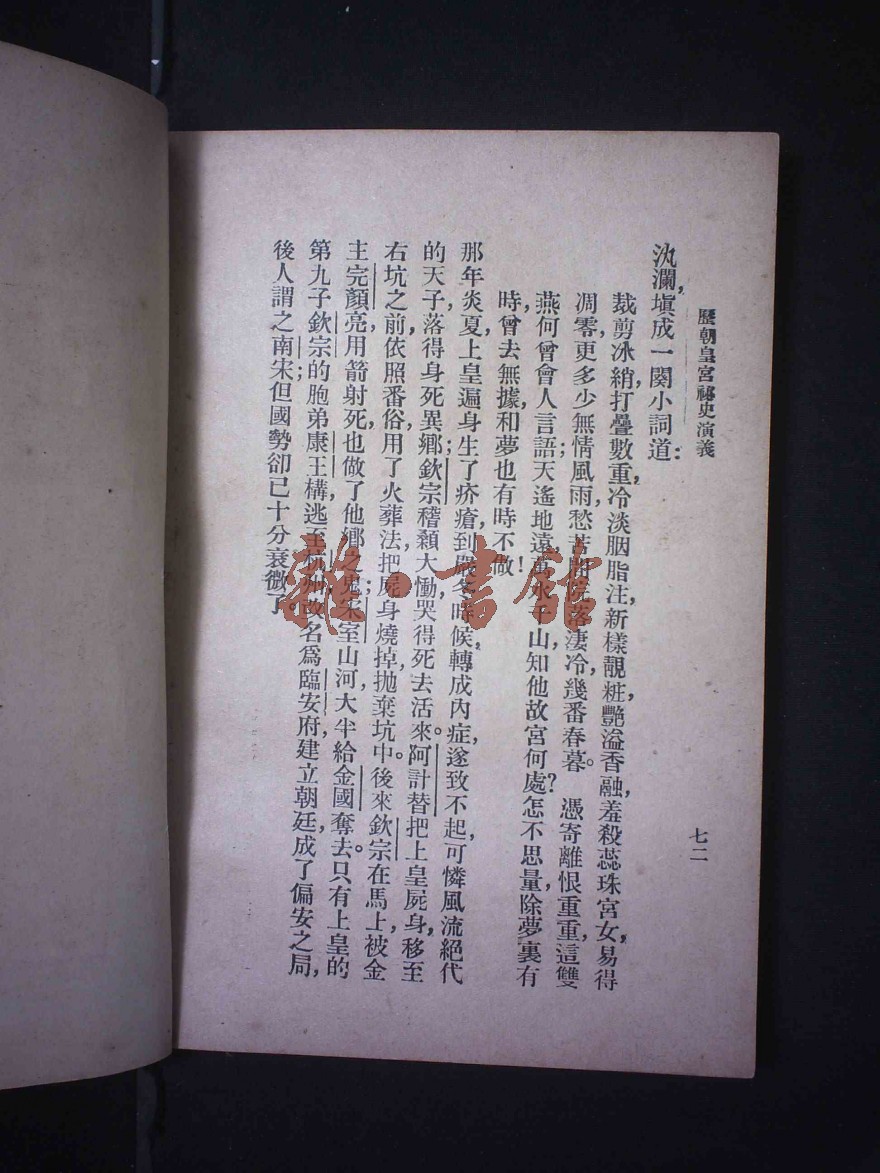 歷朝皇宮祕史演義
七二
汍瀾，塡成一闋小詞道：
裁剪冰綃，打疊數重，冷淡胭脂注，新樣靚粧，豔溢香融，羞殺蕊珠宮女，易得
凋零，更多少無情風雨，愁苦閒院落淒冷，幾番春暮。憑寄離恨重重，這雙
燕何曾會人言語，天遙地遠，萬水千山，知他故宮何處？怎不思量，除夢裏有
時曾去，無據，和夢也有時不做！
那年炎夏，上皇遍身生了疥瘡；到嚴冬時候，轉成內症，遂致不起，可憐風流絕代
的天子，落得身死異鄉；欽宗稽顙大慟，哭得死去活來。阿計替把上皇屍身，移至
右坑之前，依照番俗，用了火葬法，把屍身燒掉，拋棄坑中。後來欽宗在馬上，被金
主完顏亮，用箭射死，也做了他鄉之鬼；宋室山河，大半給金國奪去。只有上皇的
第九子，欽宗的胞弟康王構，逃至杭州，改名爲臨安府，建立朝廷，成了偏安之局，
後人謂之南宋；但國勢卻已十分衰微了。
雜·書館